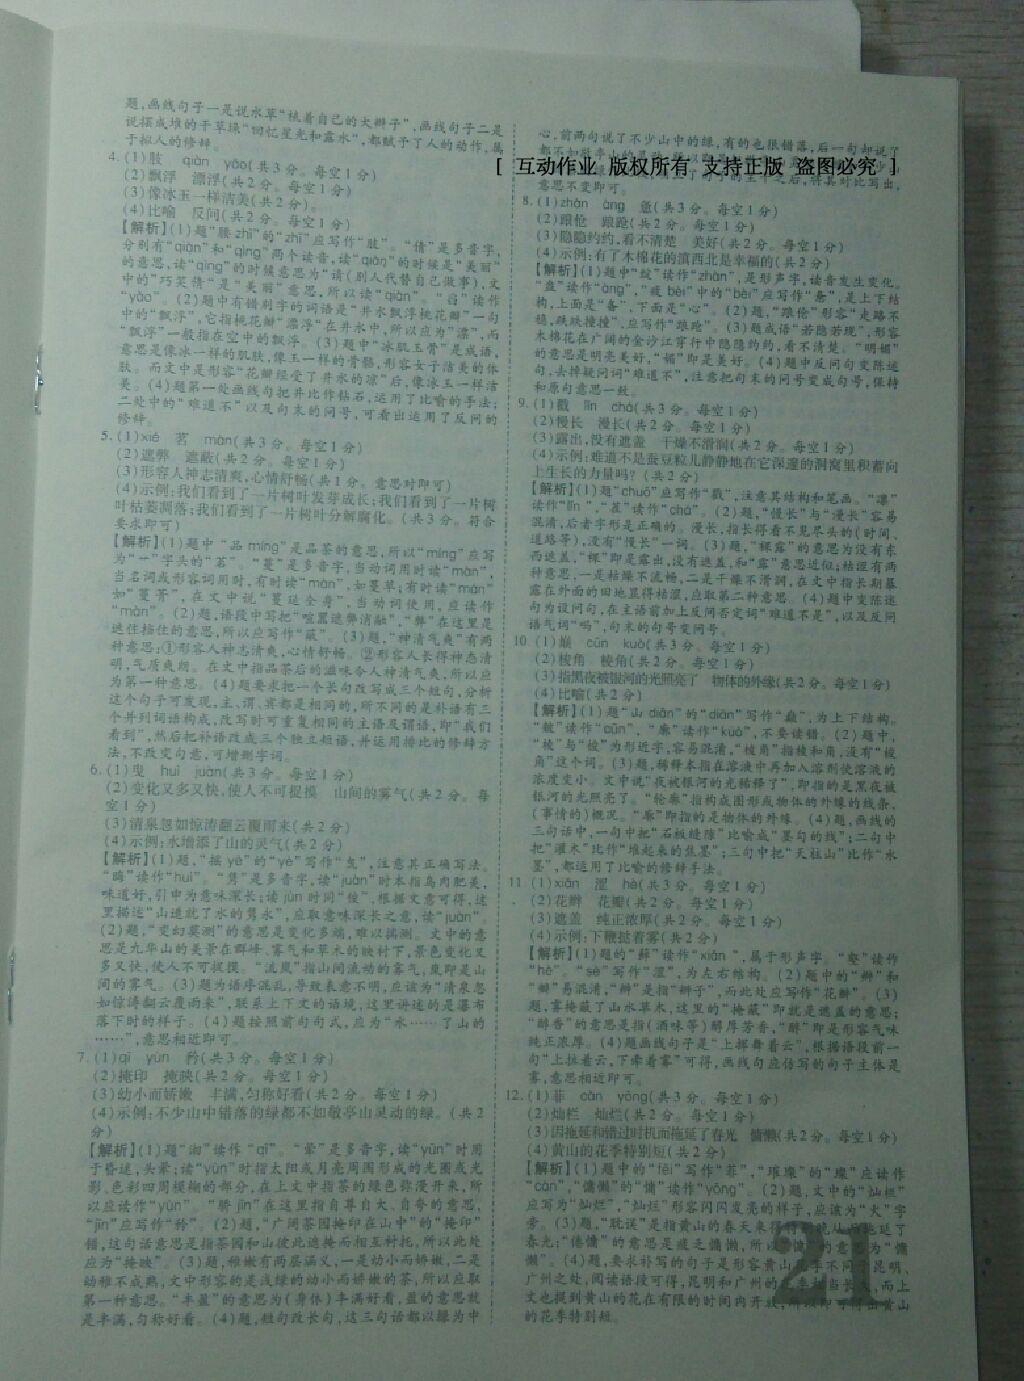 题,画线句子一是说水草“梳着自己的大辫子”,画线句子二是
说摆成堆的干草垛“回忆星光和露水”,都赋予了人的动作,属
于拟人的修辞。
4.(1)肢 qiàn yǎo(共3分。每空1分)
(2)飘浮 漂浮(共2分。每空1分)
(3)像冰玉一样洁美(共2分)。
(4)比喻 反问(共2分。每空1分)
【解析】(1)题“腰zhī”的“zhī”应写作“肢”。“倩”是多音字,
分别有“qiàn”和“qìng”两个读音,读“qiàn”的时候是“美丽”
的意思,读“qìng”的时候意思为“请(别人代替自己做事),文
中的“巧笑倩”是“美丽”意思,所以读“qiàn”。“舀”读作
“yǎo”。(2)题中有错别字的词语是“井水飘浮桃花瓣”一句
中的“飘浮”,它指桃花瓣“漂浮”在井水中,所以应为“漂”,而
“飘浮”一般指在空中的飘浮。(3)题中“冰肌玉骨”是成语,
意思是像冰一样的肌肤,像玉一样的骨骼,形容女子洁美的体
肤。而文中是形容“花瓣经受了井水的凉”后,像冰玉一样洁
美。(4)题第一处画线句把井比作钻石,运用了比喻的手法;
二处中的“难道不”以及句末的问号,可看出运用了反问的
修辞。
5.(1)xié 茗 màn(共3分。每空1分)
(2)遮弊 遮蔽(共2分。每空1分)
(3)形容人神志清爽,心情舒畅(共1分。意思对即可)
(4)示例:我们看到了一片树叶发芽成长;我们看到了一片树
叶枯萎凋落;我们看到了一片树叶分解腐化。(共3分。符合
要求即可)
【解析】(1)题中“品míng”是品茶的意思,所以“míng”应写
为“艹”字头的“茗”。“蔓”是多音字,当动词用时读“màn”,
当名词或形容词用时,有时读“màn”,如蔓草;有时读“mán”
如“蔓菁”,在文中说“蔓延全身”,当动词使用,应读作
“màn”。(2)题,语段中写把“喧嚣遮弊消融”,“弊”在这里是
遮住挡住的意思,所以应写作“蔽”。(3)题,“神清气爽”有两
种意思:①形容人神志清爽,心情舒畅。②形容人长得神态清
明,气质爽朗。在文中指品茶后的滋味令人神清气爽,所以应
为第一种意思。(4)题要求把一个长句改写成三个短句,分析
这个句子可发现,主、谓、宾都是相同的,所不同的是补语有三
个并列词语构成,改写时可重复相同的主语及谓语,即“我们
看到”,然后把补语改成三个独立短语,并运用排比的修辞方
法,不改变句意,可增删字词。
6.(1)曳 huì juàn(共3分。每空1分)
(2)变化又多又快,使人不可捉摸 山间的雾气(共2分。每
空1分)
(3)清泉忽如惊涛翻云覆雨来(共2分)
(4)示例:水增添了山的灵气(共2分)
【解析】(1)题,“摇yè”的“yè”写作“曳”,注意其正确写法。
“晦”读作“huì”。“隽”是多音字,读“juàn”时本指鸟肉肥美,
味道好,引申为意味深长;读jùn时同“俊”。根据文意可得,这
里描述“山造就了水的隽永”,应取意味深长之意,读“juàn”。
(2)题,“变幻莫测”的意思是变化多端,难以揣测。文中的意
思是九华山的美景在群峰、雾气和草木的映衬下,景色变化又
多又快,使人不可捉摸。“流岚”指山间流动的雾气,岚即是山
间的雾气。(3)题为语序混乱,导致表意不明,应该为“清泉忽
如惊涛翻云覆雨来”,联系上下文的语境,这里讲述的是瀑布
落下时的样子。(4)题按照前句句式,应为“水……了山的
……”,意思相近即可。
7.(1)qī yùn 矜(共3分。每空1分)
(2)掩印 掩映(共2分。每空1分)
(3)幼小而娇嫩 丰满,匀称好看(共2分。每空1分)
(4)示例:不少山中错落的绿都不如敬亭山灵动的绿。(共2
分)
【解析】(1)题“沏”读作“qī”。“晕”是多音字,读“yūn”时用
于昏迷,头晕;读“yùn”时指太阳或月亮周围形成的光圈或光
影、色彩四周模糊的部分,在上文中指茶的绿色弥漫开来,所
以应读作“yùn”。“骄jīn”在这里指自尊自大、自夸的意思,
“jīn”应写作“矜”。(2)题,“广阔茶园掩印在山中”的“掩印”
错,这句话意思是指茶园和山彼此遮掩而相互衬托,所以此处
应为“掩映”。(3)题,稚嫩有两层涵义,一是幼小而娇嫩,二是
幼稚不成熟,文中形容的是浅绿的幼小而娇嫩的茶,所以应取
第一种意思。“丰盈”的意思为(身体)丰满好看,盈的意思就
是丰满,匀称好看。(4)题,短句改长句,这三句话都以绿为中
心,前两句说了不少山中的绿,有的也很错落,后一句却说了
[ 互动作业 版权所有 支持正版 盗图必究 ]
意思不变即可。
8.(1)zhàn àng 惫(共3分。每空1分)
(2)踉怆 踉跄(共2分。每空1分)
(3)隐隐约约,看不清楚 美好(共2分。每空1分)
(4)示例:有了木棉花的滇西北是幸福的(共2分)
【解析】(1)题中“绽”读作“zhàn”,是形声字,读音发生变化。
“盎”读作“àng”,“疲bèi”中的“bèi”应写作“惫”,是上下结
构,上面是“备”,下面是“心”。(2)题,“踉怆”形容“走路不
稳,跌跌撞撞”,应写作“踉跄”。(3)题成语“若隐若现”,形容
木棉花在广阔的金沙江穿行中隐隐约约,看不清楚。“明媚”
的意思是明亮美好,“媚”即是美好。(4)题中反问句变陈述
句,去掉疑问词“难道不”,注意把句末的问号变成句号,保持
和原句意思一致。
9.(1)戳 lǐn chá(共3分。每空1分)
(2)慢长 漫长(共2分。每空1分)
(3)露出,没有遮盖 干燥不滑润(共2分。每空1分)
(4)示例:难道不是蚕豆粒儿静静地在它深邃的洞窝里积蓄向
上生长的力量吗?(共2分)
【解析】(1)题“chuō”应写作“戳”,注意其结构和笔画。“凛”
读作“lǐn”,“茬”读作“chá”。(2)题,“慢长”与“漫长”容易
混淆,后者字形是正确的。漫长,指长得看不见尽头的(时间、
道路等),没有“慢长”一词。(3)题,“裸露”的意思为没有东
西遮盖,“裸”即是露出,没有遮盖,和“露”意思近似;枯涩有两
种意思,一是枯燥不流畅,二是干燥不滑润,在文中指长期暴
露在外面的田地显得枯涩,应取第二种意思。(4)题中变陈述
句为设问句,在主语前加上反问否定词“难道不是”,以及反问
语气词“吗”,句末的句号变问号。
10.(1)巅 cūn kuò(共3分。每空1分)
(2)梭角 棱角(共2分。每空1分)
(3)指黑夜被银河的光照亮了 物体的外缘(共2分。每空1分)
(4)比喻(共2分)
【解析】(1)题“山diān”的“diān”写作“巅”,为上下结构。
“皴”读作“cūn”,“廓”读作“kuò”,不要读错。(2)题中,
“棱”与“梭”为形近字,容易混淆,“棱角”指棱和角,没有“梭
角”这个词。(3)题,稀释本指在溶液中再加入溶剂使溶液的
浓度变小。文中说“夜被银河的光稀释了”,即指的是黑夜被
银河的光照亮了。“轮廓”指构成图形或物体的外缘的线条,
(事情的)概况。“廓”即指的是物体的外缘。(4)题,画线的
三句话中,一句中把“石板缝隙”比喻成“墨勾的线”;二句中
把“灌木”比作“堆起来的焦墨”;三句中把“天柱山”比作“水
墨”,都运用了比喻的修辞手法。
11.(1)xiǎn 涩 hè(共3分。每空1分)
(2)花辫 花瓣(共2分。每空1分)
(3)遮盖 纯正浓厚(共2分。每空1分)
(4)示例:下鞭挞着雾(共2分)
【解析】(1)题的“藓”读作“xiǎn”,属于形声字。“壑”读作
“hè”。“sè”写作“涩”,为左右结构。(2)题中的“辫”和
“瓣”易混淆,“辫”是指“辫子”,而此处应写作“花瓣”。(3)
题,雾掩蔽了山水草木,这里的“掩蔽”即就是遮盖的意思;
“醇香”的意思是指(酒味等)醇厚芳香,“醇”即是形容气味
纯正浓厚。(4)题画线句子是“上挥舞着云”,根据语段前一
句“上扯着云,下牵着雾”可得,画线句应仿写的句子主体是
雾,意思相近即可。
12.(1)菲 càn yōng(共3分。每空1分)
(2)灿栏 灿烂(共2分。每空1分)
(3)因拖延和错过时机而拖延了春光 慵懒(共2分。每空1分)
(4)黄山的花季特别短(共2分)
【解析】(1)题中的“fēi”写作“菲”,“璀璨”的“璨”应读作
“càn”,“慵懒”的“慵”读作“yōng”。(2)题,文中的“灿栏”
应写为“灿烂”,“灿烂”形容闪闪发亮的样子,应该为“火”字
旁。(3)题,“耽误”是指黄山的春天来得
春光;“倦慵”的意思是疲乏慵懒,所以“慵”的意思为“慵
懒”。(4)题,要求补写的句子是形容黄山花季不同于昆明、
广州之处,阅读语段可得,昆明和广州的花季相当长久,而上
文也提到黄山的花在有限的时间内开放,所以即可得出黄山
的花季特别短。
21